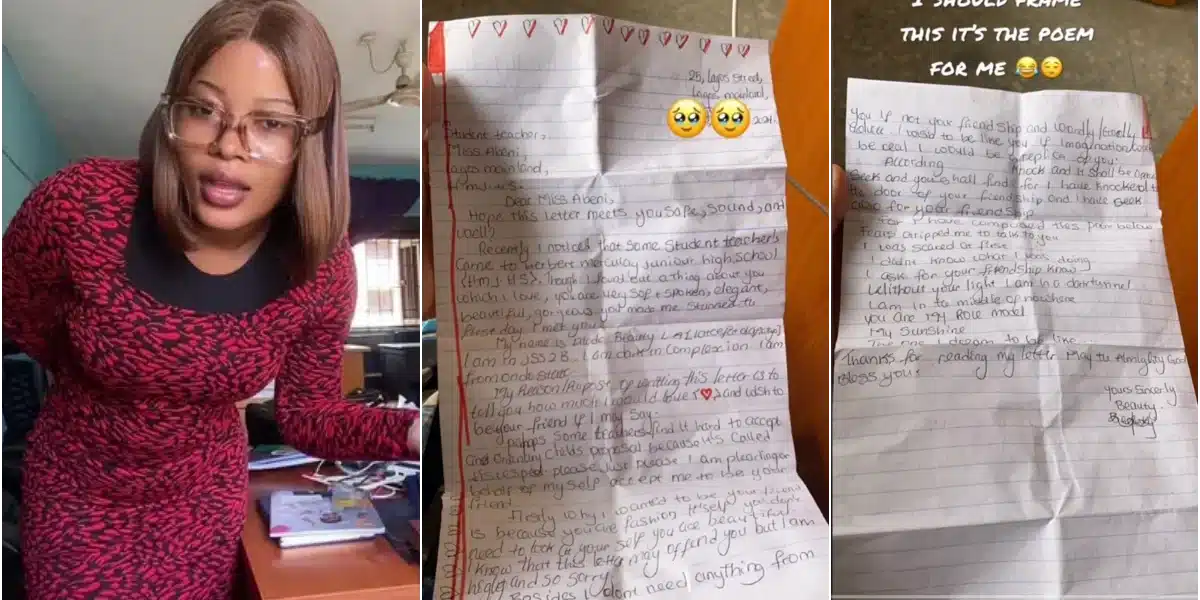 25, Lagos Street,
Lagos mainland,
Student teacher,
Miss Abeni
Lagos mainland,
Dear Miss Abeni,
Hope this letter meets you safe, sound, and
well?
Recently I noticed that some student teachers
came to Herbert maculay juniour high school
(HMJHS). Though I found out a thing about you
which I love, you are very soft spoken, elegant,
beautiful, gorgeous you made me stunned the
first day I met you
My name is Beauty
I am in JSS2B. I am dark in complexion. I am
from ondo state
My Reason/Purpose of writting this letter is to
tell you how much I would love and wish to
be your friend if I may say.
some teachers find it hard to accept
an ordinary childs proposal because it's called
disrespect please just please I am pleading on
behalf of myself accept me to be your
friend.
Firstly why I wanted to be your friend
is because you are fashion itself you don't
need to look at your self you are beautiful
I know that this letter may offend you but I am
and so sorry
Besides I don't need anything from
I SHOULD FRAME
THIS IT'S THE POEM
FOR ME 😂😌
you if not your friendship and wordly/Godly
advice. I wish to be like you if imagination
be real I would be a replica of you.
According Knock and it shall be
Seek and you shall find for I have knocked
the door of your friendship and I have seek
also for your friendship
For I have composed this poem below
Fears gripped me to talk to you
I was scared at first
I didnt know what I was doing
I ask for your friendship know
Without your light I am in a dark tunnel
I am in to middle of nowhere
you are My Role model
My Sunshine
The one I dream to be like
Thanks for reading my letter May to Almighty God
Bless you.
Yours Sincerly
Beauty